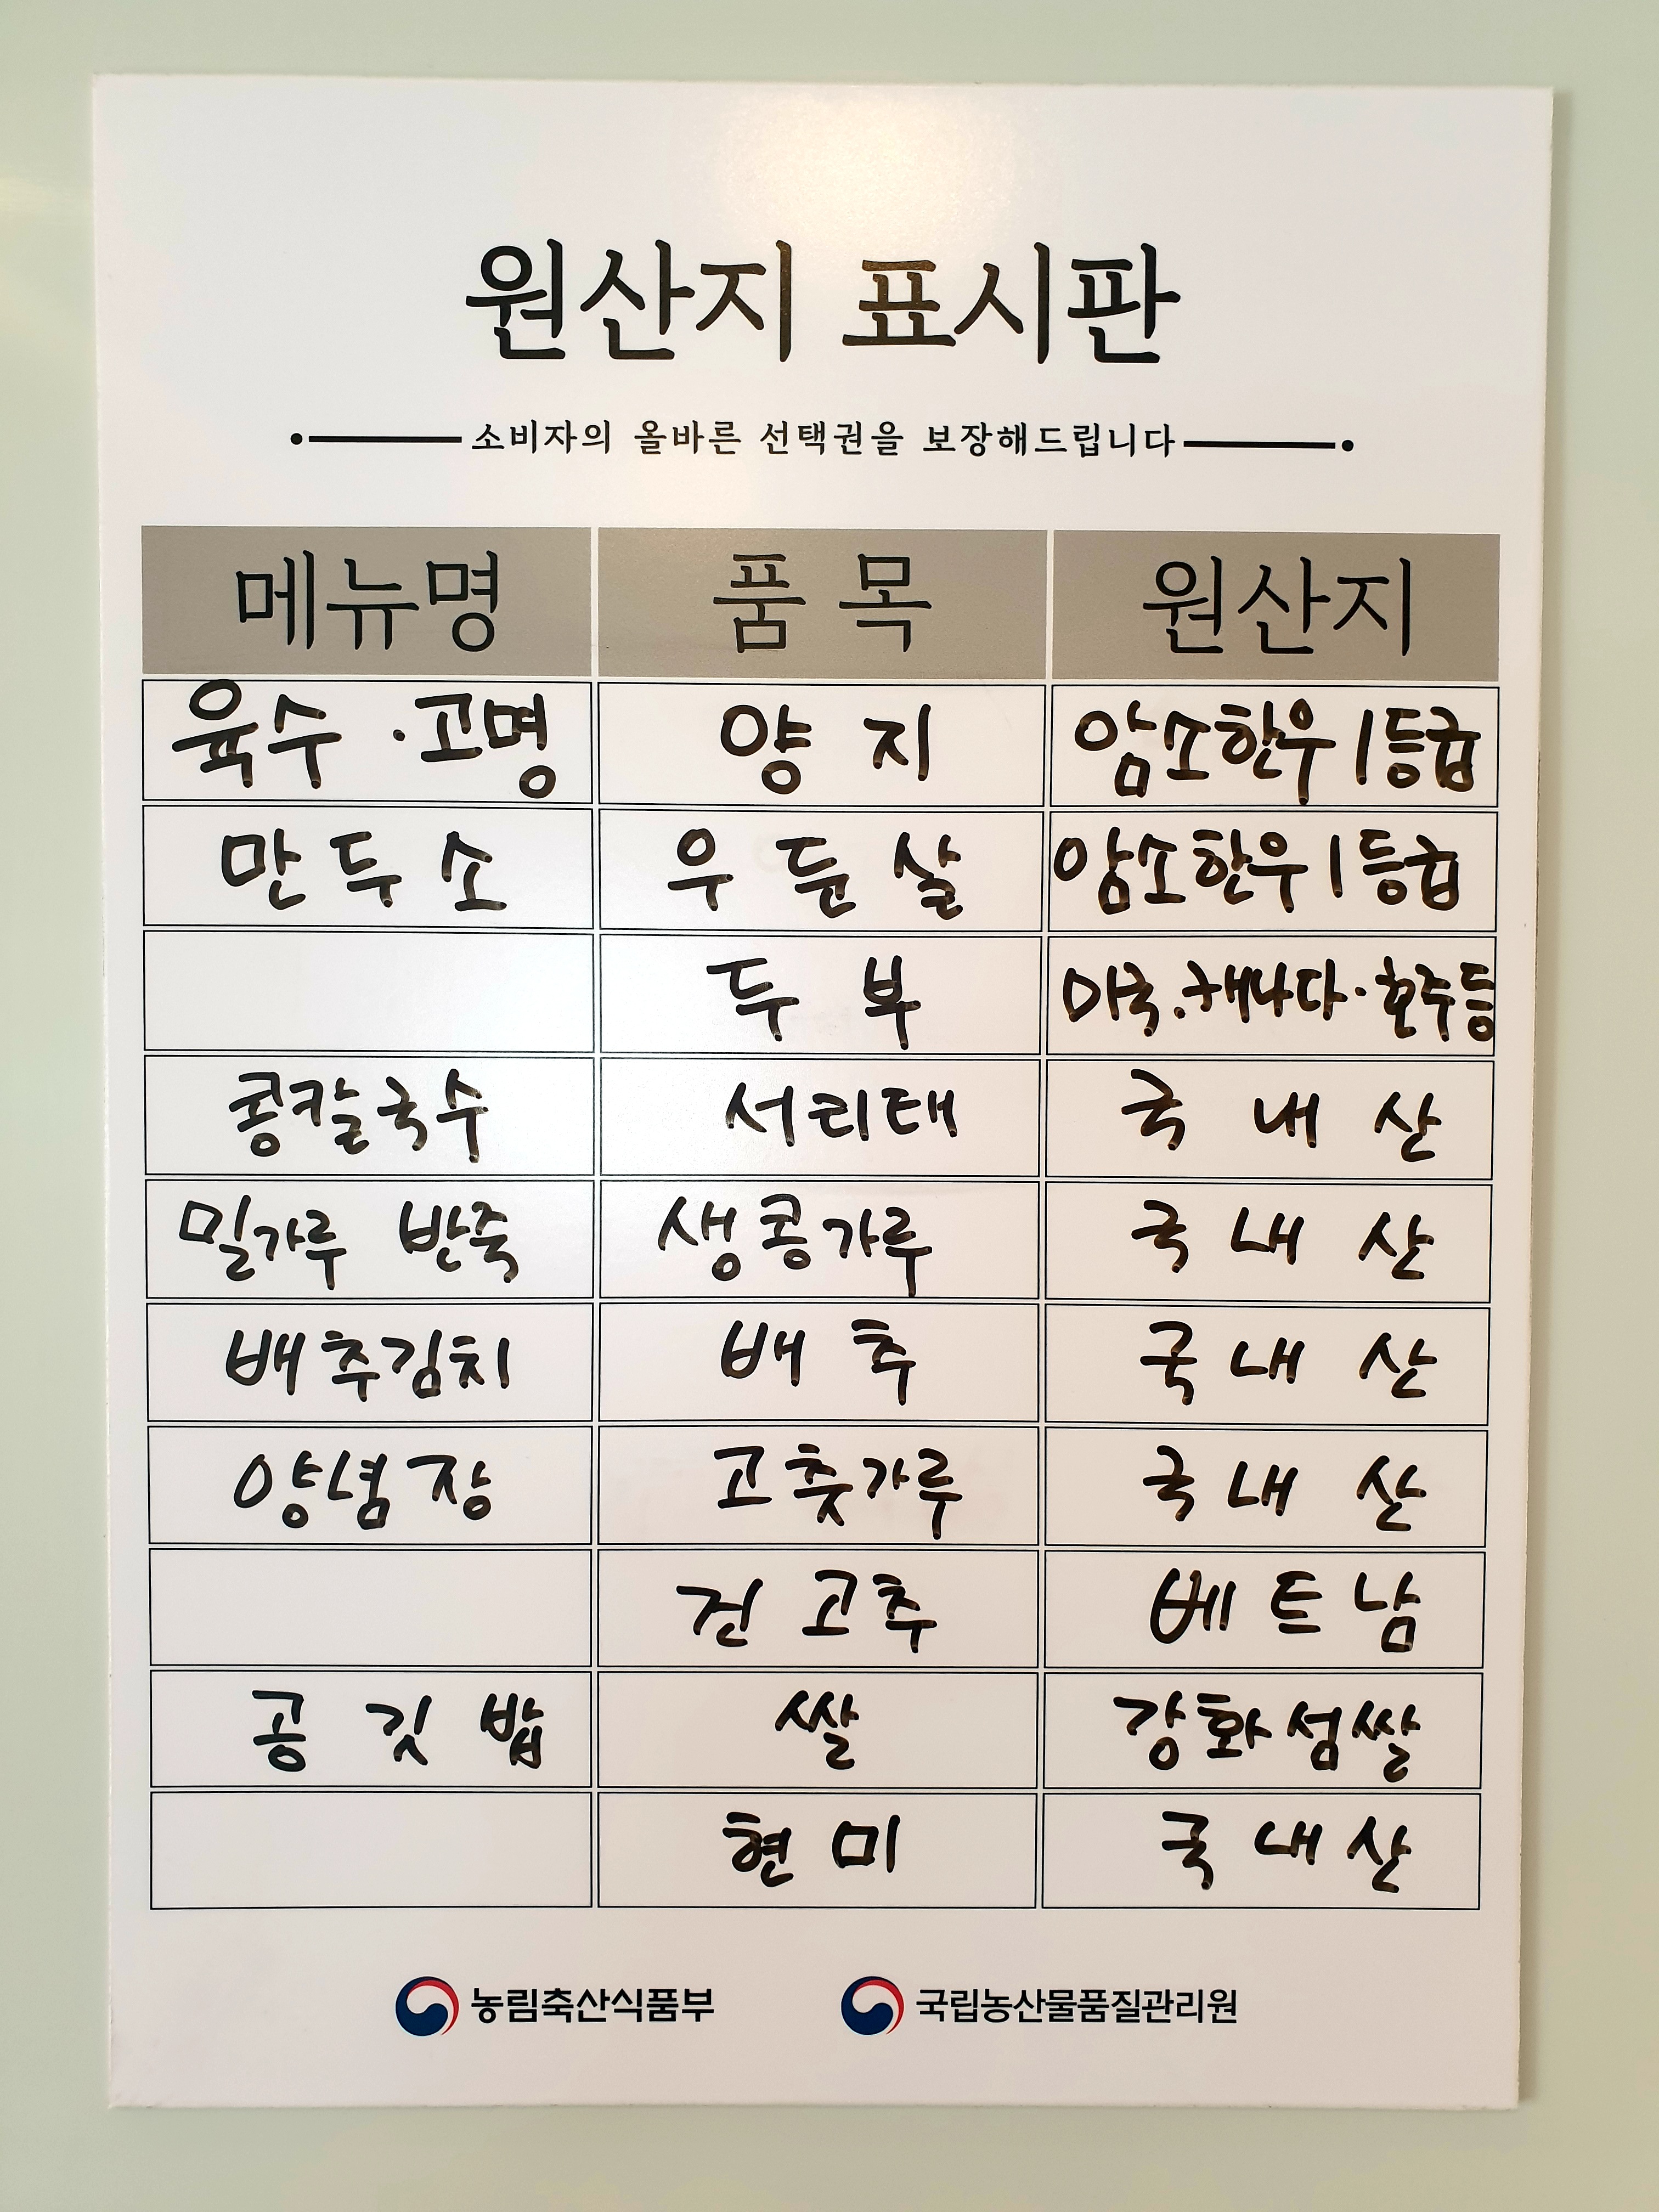 원산지 표시판
소비자의 올바른 선택권을 보장해드립니다
메뉴명 품목 원산지
육수·고명 양지 암소한우1등급
만두소 우둔살 암소한우1등급
두부 미국.캐나다·호주등
콩칼국수 서리태 국내산
밀가루 반죽 생콩가루 국내산
배추김치 배추 국내산
양념장 고춧가루 국내산
건고추 베트남
공깃밥 쌀 강화섬쌀
현미 국내산
농림축산식품부 국립농산물품질관리원